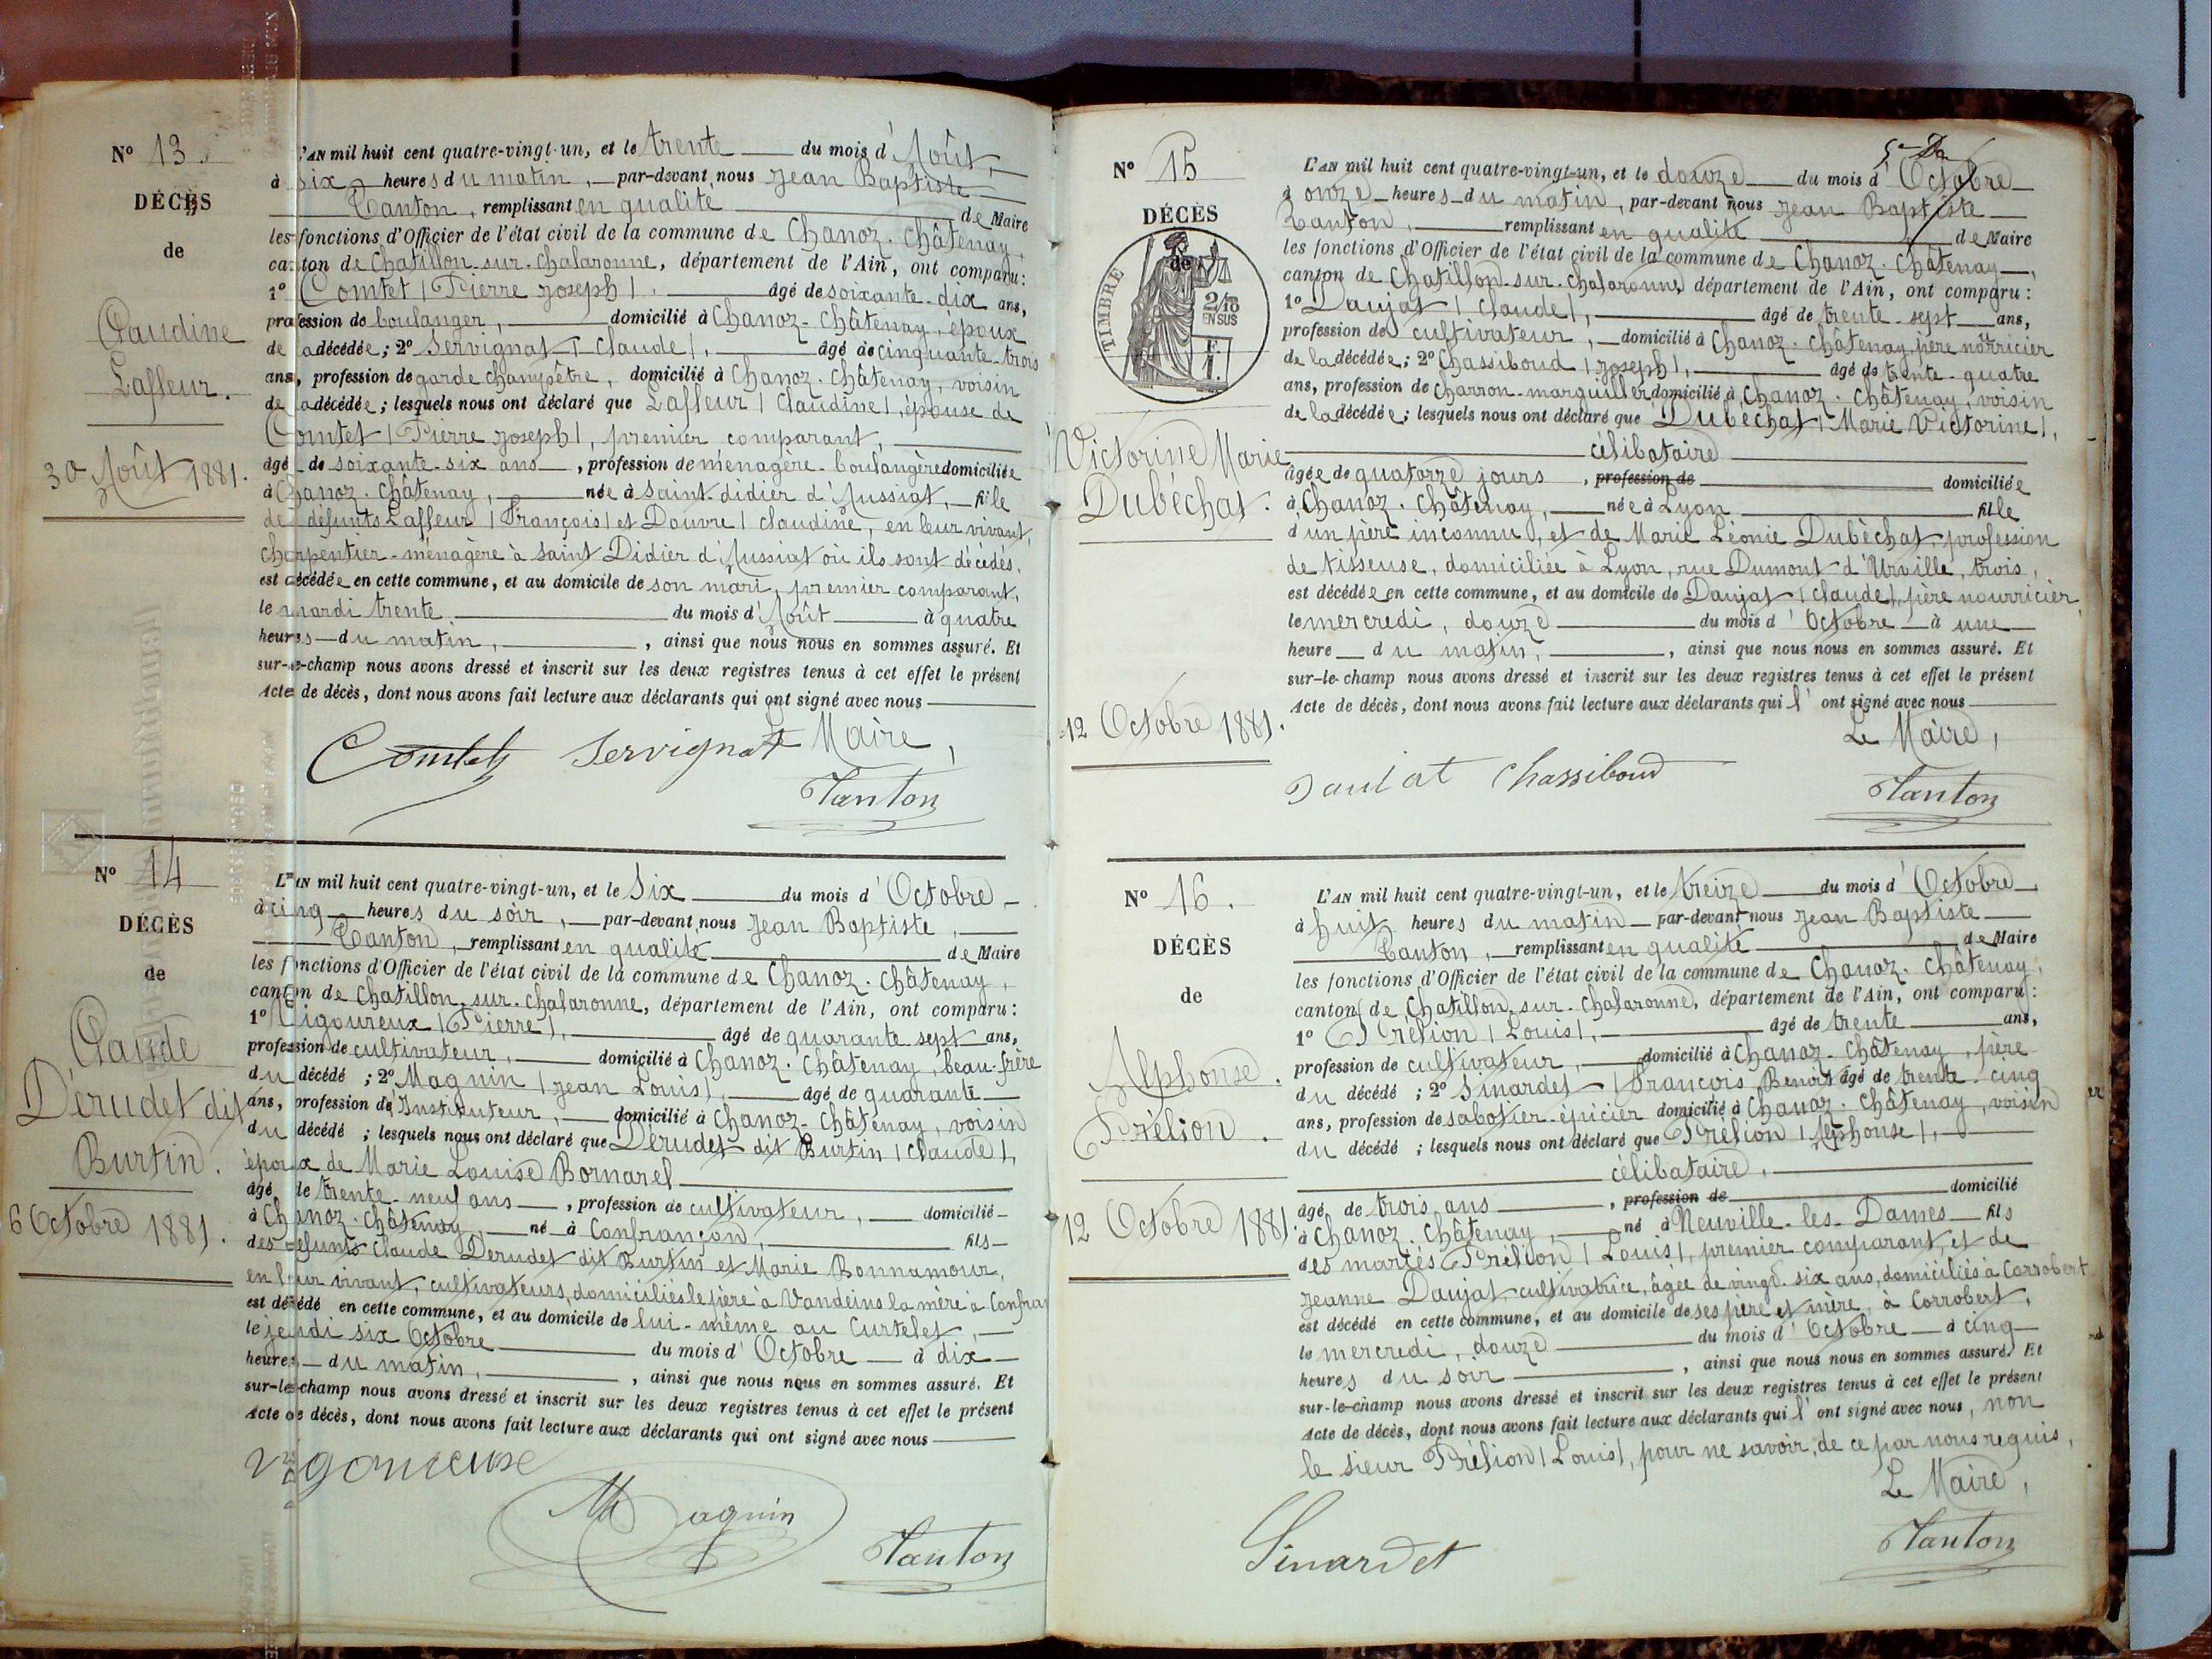 N° 13.
DÉCÈS
de
Claudine
Lafleur.
30 Août 1881.
L'AN mil huit cent quatre-vingt-un, et le trente du mois d'Août,
à six heures du matin, par-devant nous Jean Baptiste
Tanton, remplissant en qualité de Maire
les fonctions d'Officier de l'état civil de la commune de Chanoz-Châtenay,
canton de Chatillon-sur-Chalaronne, département de l'Ain, ont comparu:
1° Comtet (Pierre Joseph), âgé de soixante-dix ans,
profession de boulanger, domicilié à Chanoz-Châtenay, époux
de la décédée; 2° Servignat (Claude), âgé de cinquante-trois
ans, profession de garde champêtre, domicilié à Chanoz-Châtenay, voisin
de la décédée; lesquels nous ont déclaré que Lafleur (Claudine), épouse de
Comtet (Pierre Joseph), premier comparant,
âgée de soixante-six ans, profession de ménagère-boulangère domiciliée
à Chanoz-Châtenay, née à Saint-didier d'Aussiat, fille
de défunts Lafleur (François) et Douvre (Claudine, en leur vivant,
charpentier-ménagère à Saint Didier d'Aussiat où ils sont décédés,
est décédée en cette commune, et au domicile de son mari, premier comparant,
le mardi trente du mois d'Août à quatre
heures du matin, ainsi que nous nous en sommes assuré. Et
sur-le-champ nous avons dressé et inscrit sur les deux registres tenus à cet effet le présent
Acte de décès, dont nous avons fait lecture aux déclarants qui ont signé avec nous
Comtet Servignat Le Maire,
Tanton
N° 14
DÉCÈS
de
Claude
Dérudet dit
Burtin.
6 Octobre 1881.
L'AN mil huit cent quatre-vingt-un, et le Six du mois d'Octobre
à cinq heures du soir, par-devant nous Jean Baptiste,
Tanton, remplissant en qualité de Maire
les fonctions d'Officier de l'état civil de la commune de Chanoz-Châtenay,
canton de Chatillon-sur-Chalaronne, département de l'Ain, ont comparu:
1° Vigoureux (Pierre), âgé de quarante sept ans,
profession de cultivateur, domicilié à Chanoz-Châtenay, beau-frère
du décédé; 2° Magnin (Jean Louis), âgé de quarante
ans, profession de Instituteur, domicilié à Chanoz-Châtenay, voisin
du décédé; lesquels nous ont déclaré que Dérudet dit Burtin (Claude),
époux de Marie Louise Bornarel
âgé de trente-neuf ans, profession de cultivateur, domicilié
à Chanoz-Châtenay, né à Confrançon, fils
des défunts Claude Derudet dit Burtin et Marie Bonnamour,
en leur vivant, cultivateurs, domiciliés le père à Vandeins la mère à Confran
est décédé en cette commune, et au domicile de lui-même au Curtelet,
le jeudi six Octobre du mois d'Octobre à dix
heures du matin, ainsi que nous nous en sommes assuré. Et
sur-le-champ nous avons dressé et inscrit sur les deux registres tenus à cet effet le présent
Acte de décès, dont nous avons fait lecture aux déclarants qui ont signé avec nous
Vigoureux
Magnin
Tanton
N° 15
DÉCÈS
de
TIMBRE
2/10
EN SUS
Victorine Marie
Dubéchat.
12 Octobre 1881.
L'AN mil huit cent quatre-vingt-un, et le douze du mois d'Octobre
à onze heures du matin, par-devant nous Jean Baptiste
Tanton, remplissant en qualité de Maire
les fonctions d'Officier de l'état civil de la commune de Chanoz-Châtenay,
canton de Chatillon-sur-Chalaronne, département de l'Ain, ont comparu:
1° Daujat (Claude), âgé de trente-sept ans,
profession de cultivateur, domicilié à Chanoz-Châtenay, père nourricier
de la décédée; 2° Chassiboud (Joseph), âgé de trente-quatre
ans, profession de Charron-marguiller domicilié à Chanoz-Châtenay, voisin
de la décédée; lesquels nous ont déclaré que Dubéchat (Marie Victorine),
célibataire
âgée de quatorze jours, profession de domiciliée
à Chanoz-Châtenay, née à Lyon fille
d'un père inconnu, et de Marie Léonie Dubéchat, profession
de tisseuse, domiciliée à Lyon, rue Dumont d'Urville, trois,
est décédée en cette commune, et au domicile de Daujat (Claude), père nourricier,
le mercredi, douze du mois d'Octobre à une
heure du matin, ainsi que nous nous en sommes assuré. Et
sur-le-champ nous avons dressé et inscrit sur les deux registres tenus à cet effet le présent
Acte de décès, dont nous avons fait lecture aux déclarants qui l'ont signé avec nous
Le Maire,
Daujat Chassiboud
Tanton
N° 16.
DÉCÈS
de
Alphonse
Prélion.
12 Octobre 1881
L'AN mil huit cent quatre-vingt-un, et le treize du mois d'Octobre
à huit heures du matin par-devant nous Jean Baptiste
Tanton, remplissant en qualité de Maire
les fonctions d'Officier de l'état civil de la commune de Chanoz-Châtenay,
canton de Chatillon-sur-Chalaronne, département de l'Ain, ont comparu:
1° Prélion (Louis), âgé de trente ans,
profession de cultivateur, domicilié à Chanoz-Châtenay, père
du décédé; 2° Sinardet (François Benoit) âgé de trente-cinq
ans, profession de sabotier-épicier domicilié à Chanoz-Châtenay, voisin
du décédé; lesquels nous ont déclaré que Prélion (Alphonse),
célibataire,
âgé de trois ans, profession de domicilié
à Chanoz-Châtenay, né à Neuville-les-Dames fils
des mariés Prélion (Louis), premier comparant, et de
Jeanne Daujat, cultivatrice, âgée de vingt-six ans, domiciliés à Corrobert,
est décédé en cette commune, et au domicile de ses père et mère, à Corrobert,
le mercredi, douze du mois d'Octobre à cinq
heures du soir, ainsi que nous nous en sommes assuré. Et
sur-le-champ nous avons dressé et inscrit sur les deux registres tenus à cet effet le présent
Acte de décès, dont nous avons fait lecture aux déclarants qui l'ont signé avec nous, non
le sieur Prélion (Louis), pour ne savoir, de ce par nous requis,
Le Maire,
Sinardet
Tanton